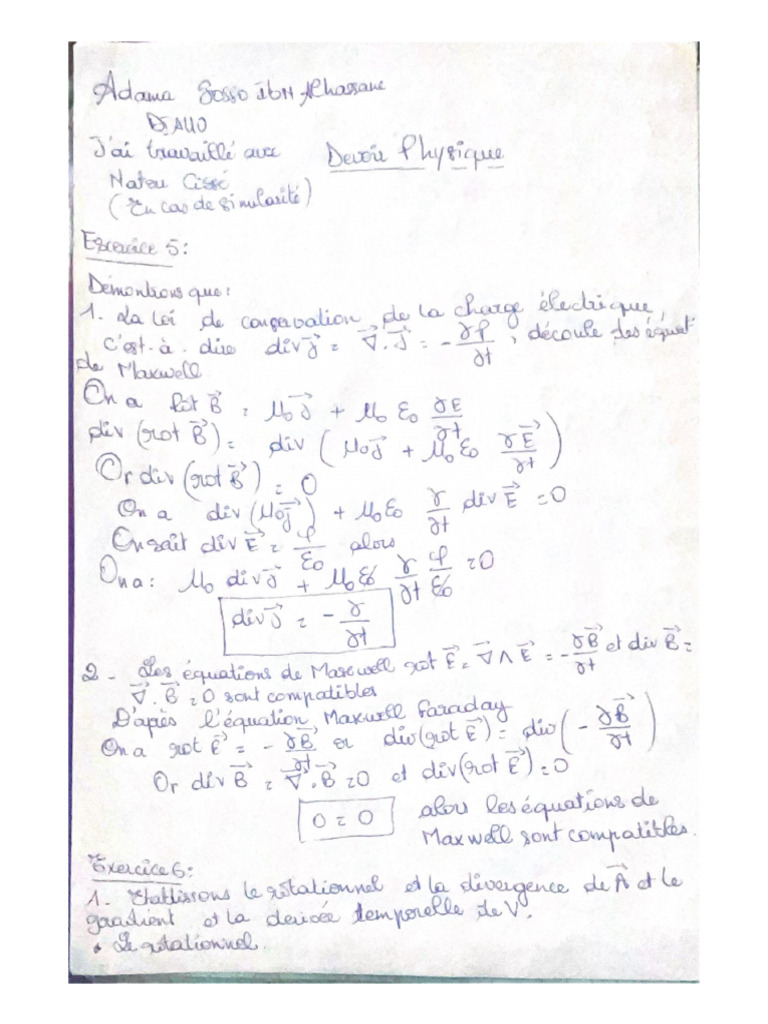 Adama Sosso Ibn Alhassane
DIALLO
J'ai travaillé avec Devoir Physique
Nateu Cissé
(En cas de simularité)
Exercice 5:
Démontrons que:
1. La loi de conservation de la charge électrique,
c'est-à-dire div j⃗ = ∇⃗.J⃗ = -∂ρ/∂t, découle des équat
de Maxwell
On a Rot B⃗ = μ₀J⃗ + μ₀ε₀ ∂E/∂t
div (rot B⃗) = div (μ₀J⃗ + μ₀ε₀ ∂E⃗/∂t)
Or div (rot B⃗) = 0
On a div (μ₀j⃗) + μ₀ε₀ ∂/∂t div E⃗ = 0
On sait div E⃗ = ρ/ε₀ alors
On a: μ₀ div J⃗ + μ₀ε₀ ∂/∂t ρ/ε₀ = 0
div J⃗ = -∂/∂t
2 - Les équations de Maxwell rot E⃗ = ∇⃗∧E⃗ = -∂B⃗/∂t et div B⃗ =
∇⃗.B⃗ = 0 sont compatibles
D'après l'équation Maxwell Faraday
On a rot E⃗ = -∂B⃗/∂t er div(rot E⃗) = div(-∂B⃗/∂t)
Or div B⃗ = ∇⃗.B⃗ = 0 et div(rot E⃗) = 0
0 = 0 alors les équations de
Maxwell sont compatibles.
Exercice 6:
1. Etablissons le rotationnel et la divergence de A⃗ et le
gradient et la derivée temporelle de V.
• Le rotationnel.